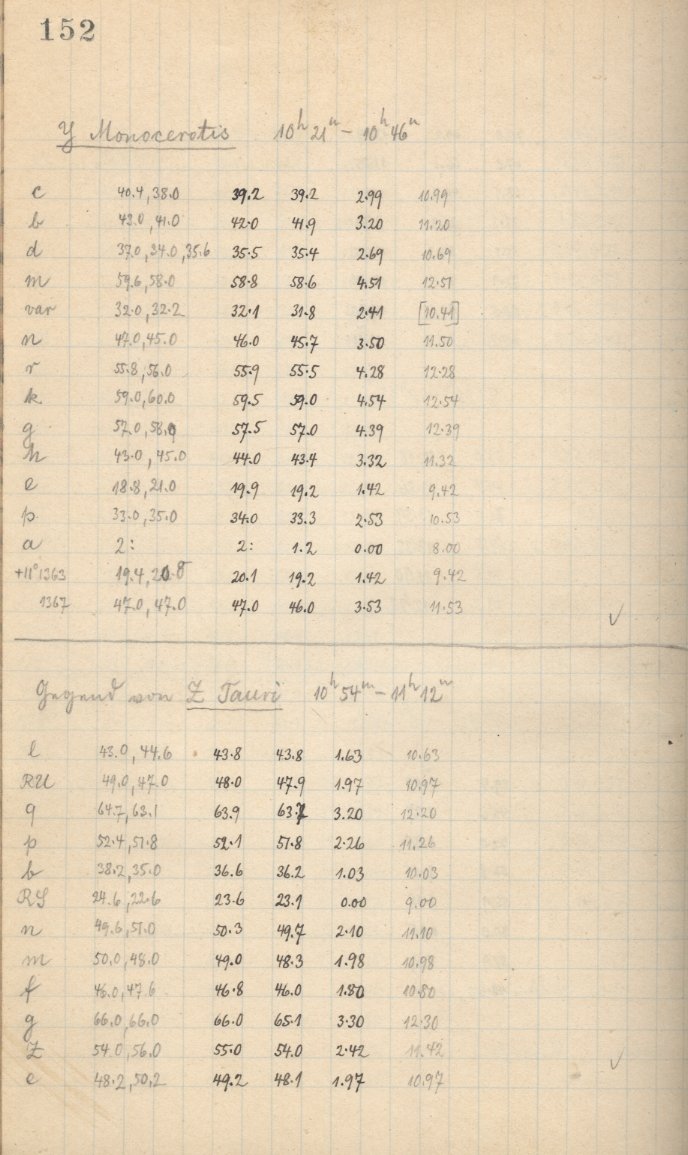 152
Y Monocerotis 10h 21m - 10h 46m
c 40.4, 38.0 39.2 39.2 2.99 10.99
b 43.0, 41.0 42.0 41.9 3.20 11.20
d 37.0, 34.0, 35.6 35.5 35.4 2.69 10.69
m 59.6, 58.0 58.8 58.6 4.51 12.51
var 32.0, 32.2 32.1 31.8 2.41 [10.41]
n 47.0, 45.0 46.0 45.7 3.50 11.50
r 55.8, 56.0 55.9 55.5 4.28 12.28
k 59.0, 60.0 59.5 59.0 4.54 12.54
g 57.0, 58.0 57.5 57.0 4.39 12.39
h 43.0, 45.0 44.0 43.4 3.32 11.32
e 18.8, 21.0 19.9 19.2 1.42 9.42
p 33.0, 35.0 34.0 33.3 2.53 10.53
a 2: 2: 1.2 0.00 8.00
+11°1363 19.4, 20.8 20.1 19.2 1.42 9.42
1367 47.0, 47.0 47.0 46.0 3.53 11.53 ✓
Gegend von Z Tauri 10h 54m - 11h 12m
l 43.0, 44.6 43.8 43.8 1.63 10.63
RU 49.0, 47.0 48.0 47.9 1.97 10.97
q 64.7, 63.1 63.9 63.7 3.20 12.20
p 52.4, 51.8 52.1 51.8 2.26 11.26
b 38.2, 35.0 36.6 36.2 1.03 10.03
RS 24.6, 22.6 23.6 23.1 0.00 9.00
n 49.6, 51.0 50.3 49.7 2.10 11.10
m 50.0, 48.0 49.0 48.3 1.98 10.98
f 46.0, 47.6 46.8 46.0 1.80 10.80
g 66.0, 66.0 66.0 65.1 3.30 12.30
Z 54.0, 56.0 55.0 54.0 2.42 11.42 ✓
e 48.2, 50.2 49.2 48.1 1.97 10.97